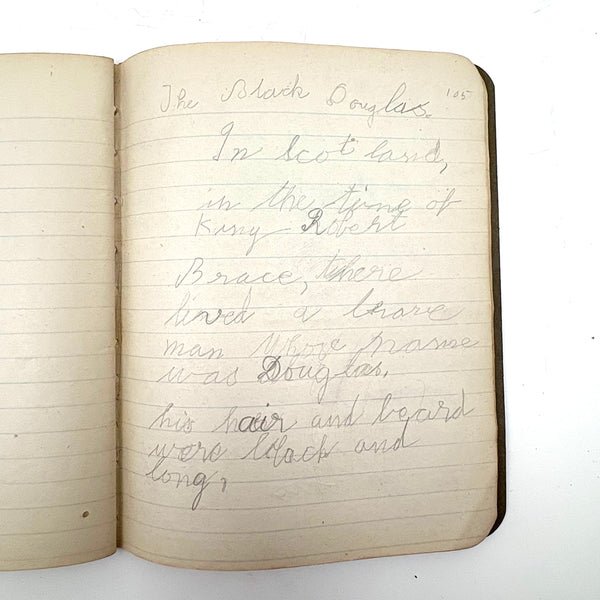 The Black Douglas. '05
In Scotland,
in the time of
King Robert
Brace, there
lived a brave
man whose name
was Douglas.
his hair and beard
were black and
long,